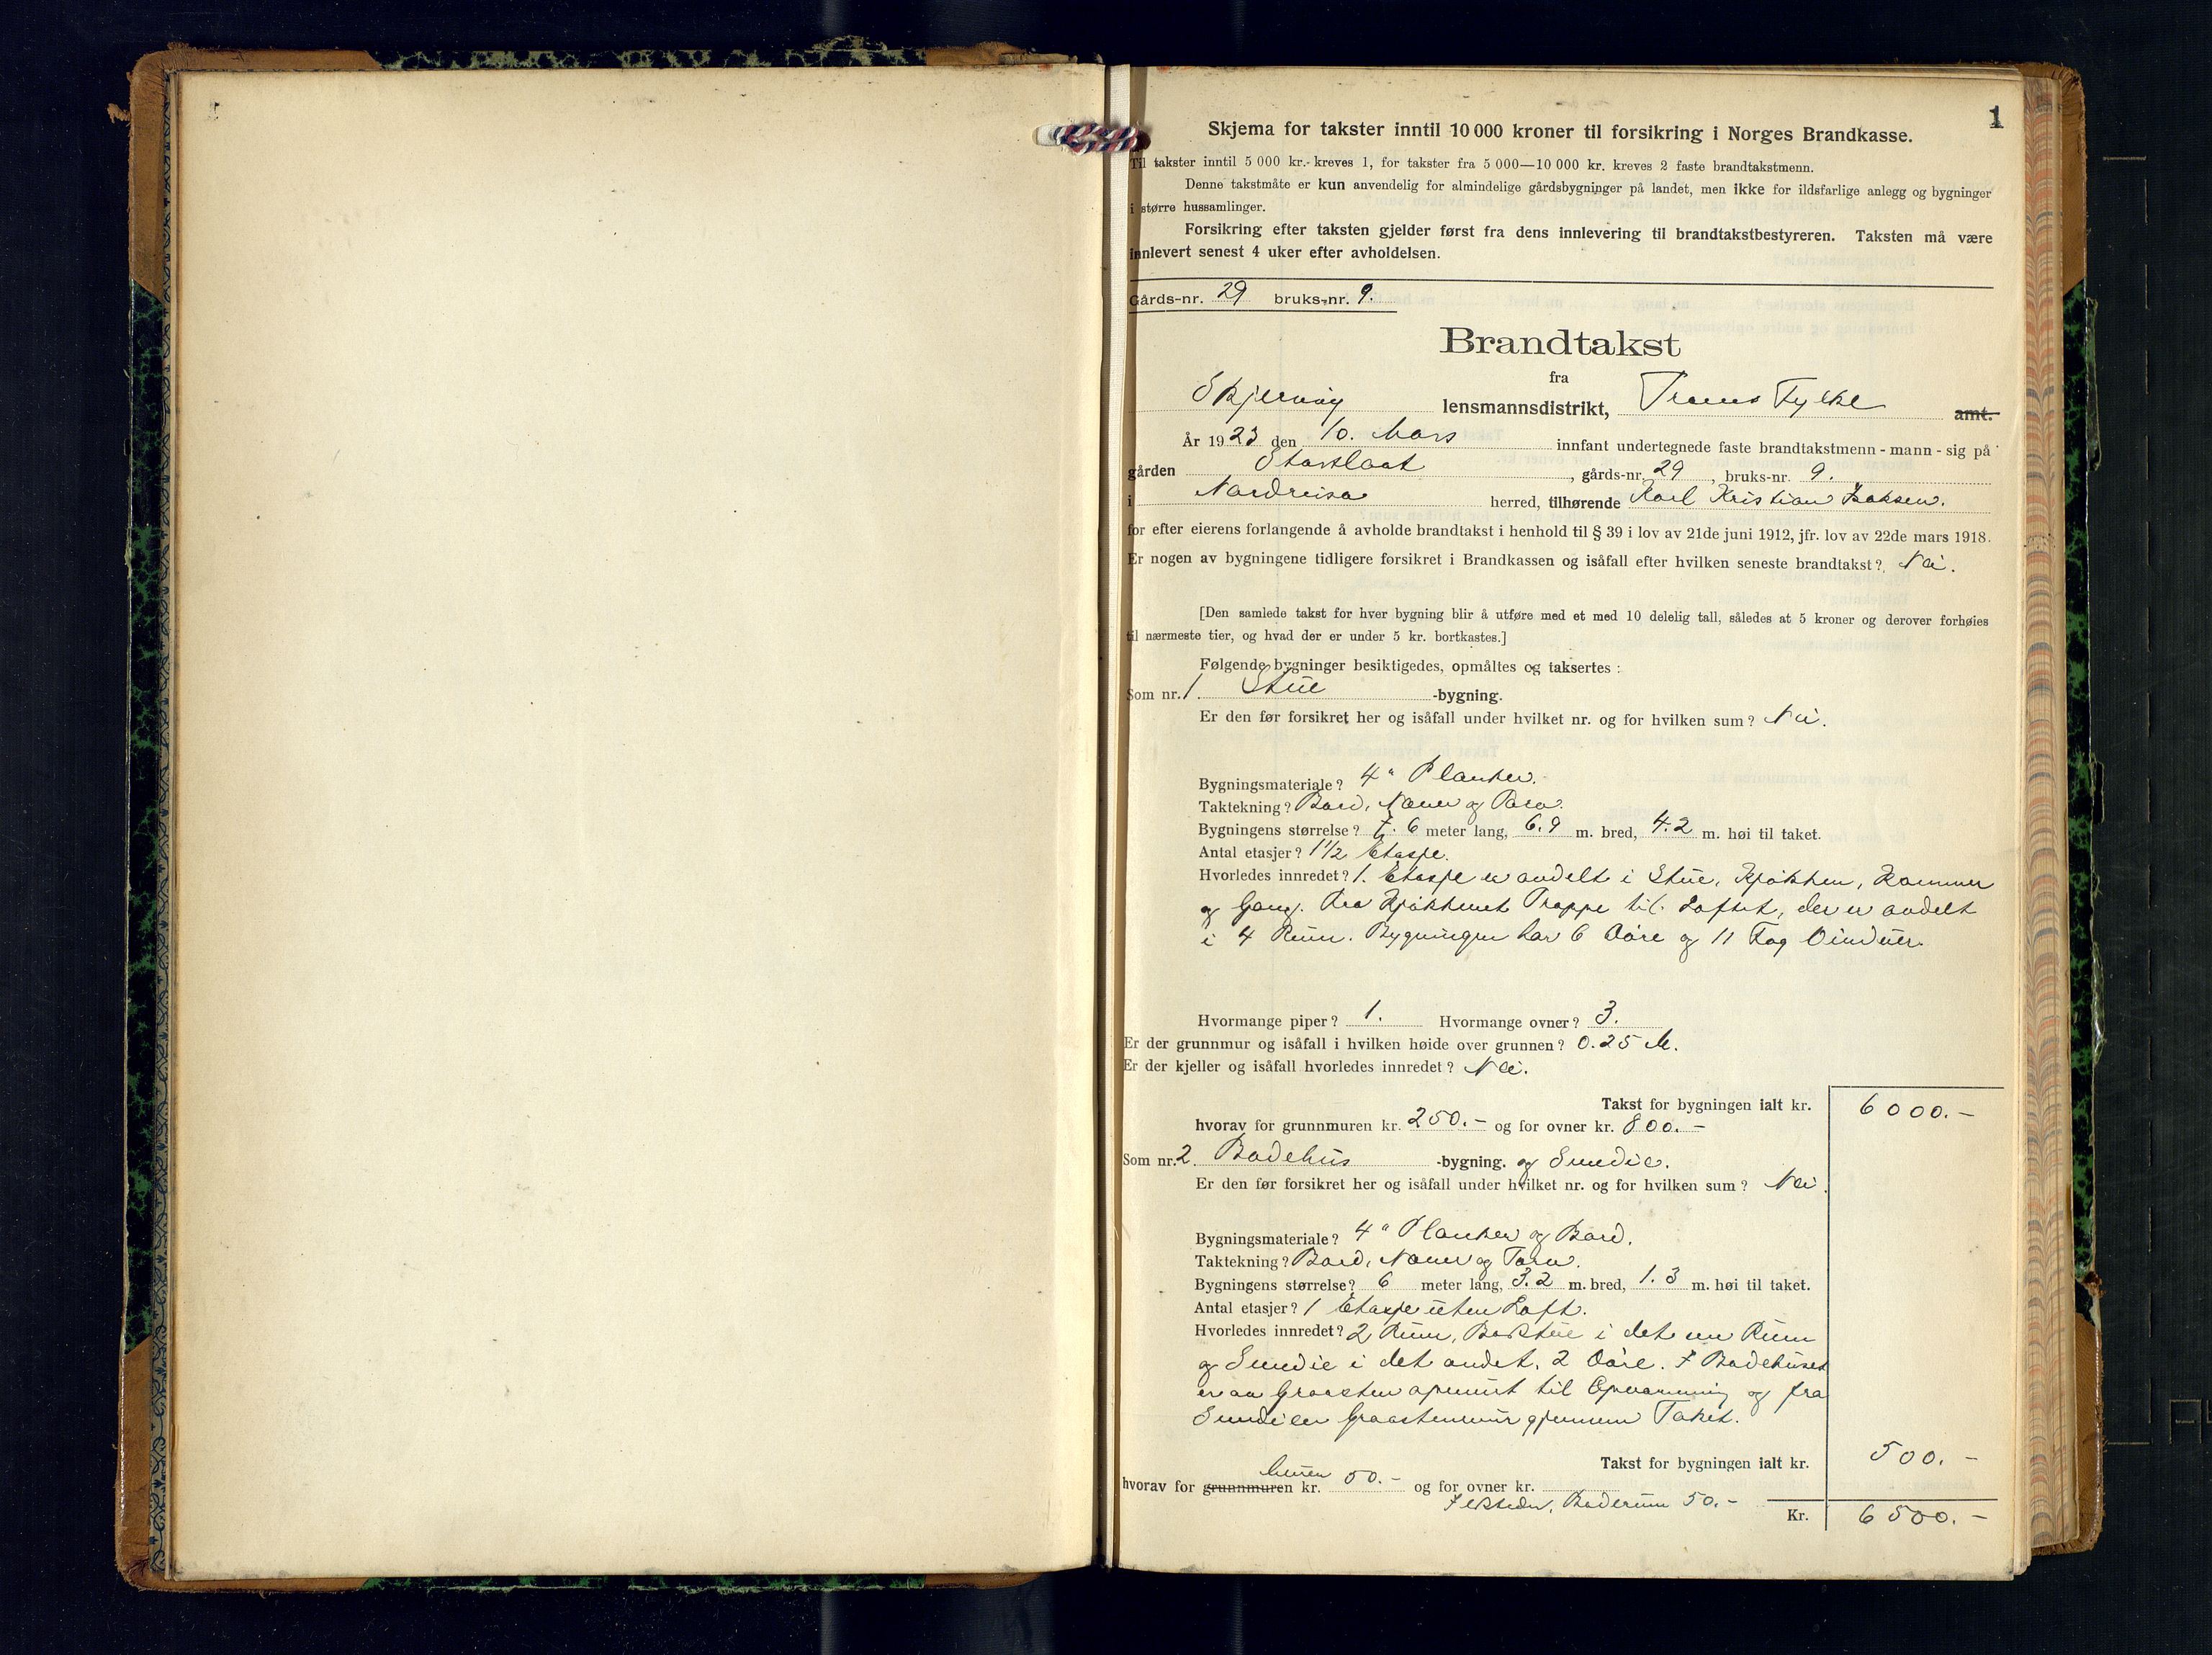 1
Skjema for takster inntil 10 000 kroner til forsikring i Norges Brandkasse.
Til takster inntil 5 000 kr. kreves 1, for takster fra 5 000—10 000 kr. kreves 2 faste brandtakstmenn.
Denne takstmåte er kun anvendelig for almindelige gårdsbygninger på landet, men ikke for ildsfarlige anlegg og bygninger
i større hussamlinger.
Forsikring efter taksten gjelder først fra dens innlevering til brandtakstbestyreren. Taksten må være
innlevert senest 4 uker efter avholdelsen.
Gårds-nr. 29 bruks-nr. 9.
Brandtakst
fra
Skjervøy lensmannsdistrikt, Troms Fylke amt.
År 1923 den 10. Mars innfant undertegnede faste brandtakstmenn - mann - sig på
gården Storslaat, gårds-nr. 29, bruks-nr. 9.
i Nordreisa herred, tilhørende Karl Kristian Isaksen.
for efter eierens forlangende å avholde brandtakst i henhold til § 39 i lov av 21de juni 1912, jfr. lov av 22de mars 1918.
Er nogen av bygningene tidligere forsikret i Brandkassen og isåfall efter hvilken seneste brandtakst? Nei.
[Den samlede takst for hver bygning blir å utføre med et med 10 delelig tall, således at 5 kroner og derover forhøies
til nærmeste tier, og hvad der er under 5 kr. bortkastes.]
Følgende bygninger besiktigedes, opmåltes og taksertes :
Som nr. 1. Stue -bygning.
Er den før forsikret her og isåfall under hvilket nr. og for hvilken sum? Nei.
Bygningsmateriale? 4" Planker.
Taktekning? Bord, Næver og Torv.
Bygningens størrelse? 7.6 meter lang, 6.9 m. bred, 4.2 m. høi til taket.
Antal etasjer? 1 1/2 Etasje.
Hvorledes innredet? 1. Etasje er avdelt i Stue, Kjøkken, Kammer
og Gang. Fra Kjøkkenet Trappe til Loftet, der er avdelt
i 4 Rum. Bygningen har 6 Døre og 11 Fag Vinduer.
Hvormange piper? 1. Hvormange ovner? 3.
Er der grunnmur og isåfall i hvilken høide over grunnen? 0.25 M.
Er der kjeller og isåfall hvorledes innredet? Nei.
Takst for bygningen ialt kr. 6000.-
hvorav for grunnmuren kr. 250.- og for ovner kr. 800.-
Som nr. 2. Badehus -bygning. og Smedie.
Er den før forsikret her og isåfall under hvilket nr. og for hvilken sum? Nei.
Bygningsmateriale? 4" Planker og Bord.
Taktekning? Bord, Næver og Torv.
Bygningens størrelse? 6 meter lang, 3.2 m. bred, 1.3 m. høi til taket.
Antal etasjer? 1 Etasje uten Loft.
Hvorledes innredet? 2 Rum, Badstue i det ene Rum
og Smedie i det andet. 2 Døre. I Badehuset
er en Graasten til Opvarmning og fra
Smedien Graastenmur gjennem Taket.
Takst for bygningen ialt kr. 500.-
Muren
hvorav for grunnmuren kr. 50.- og for ovner kr.
Ildsteder, Baderum 50.-
Kr. 6500.-